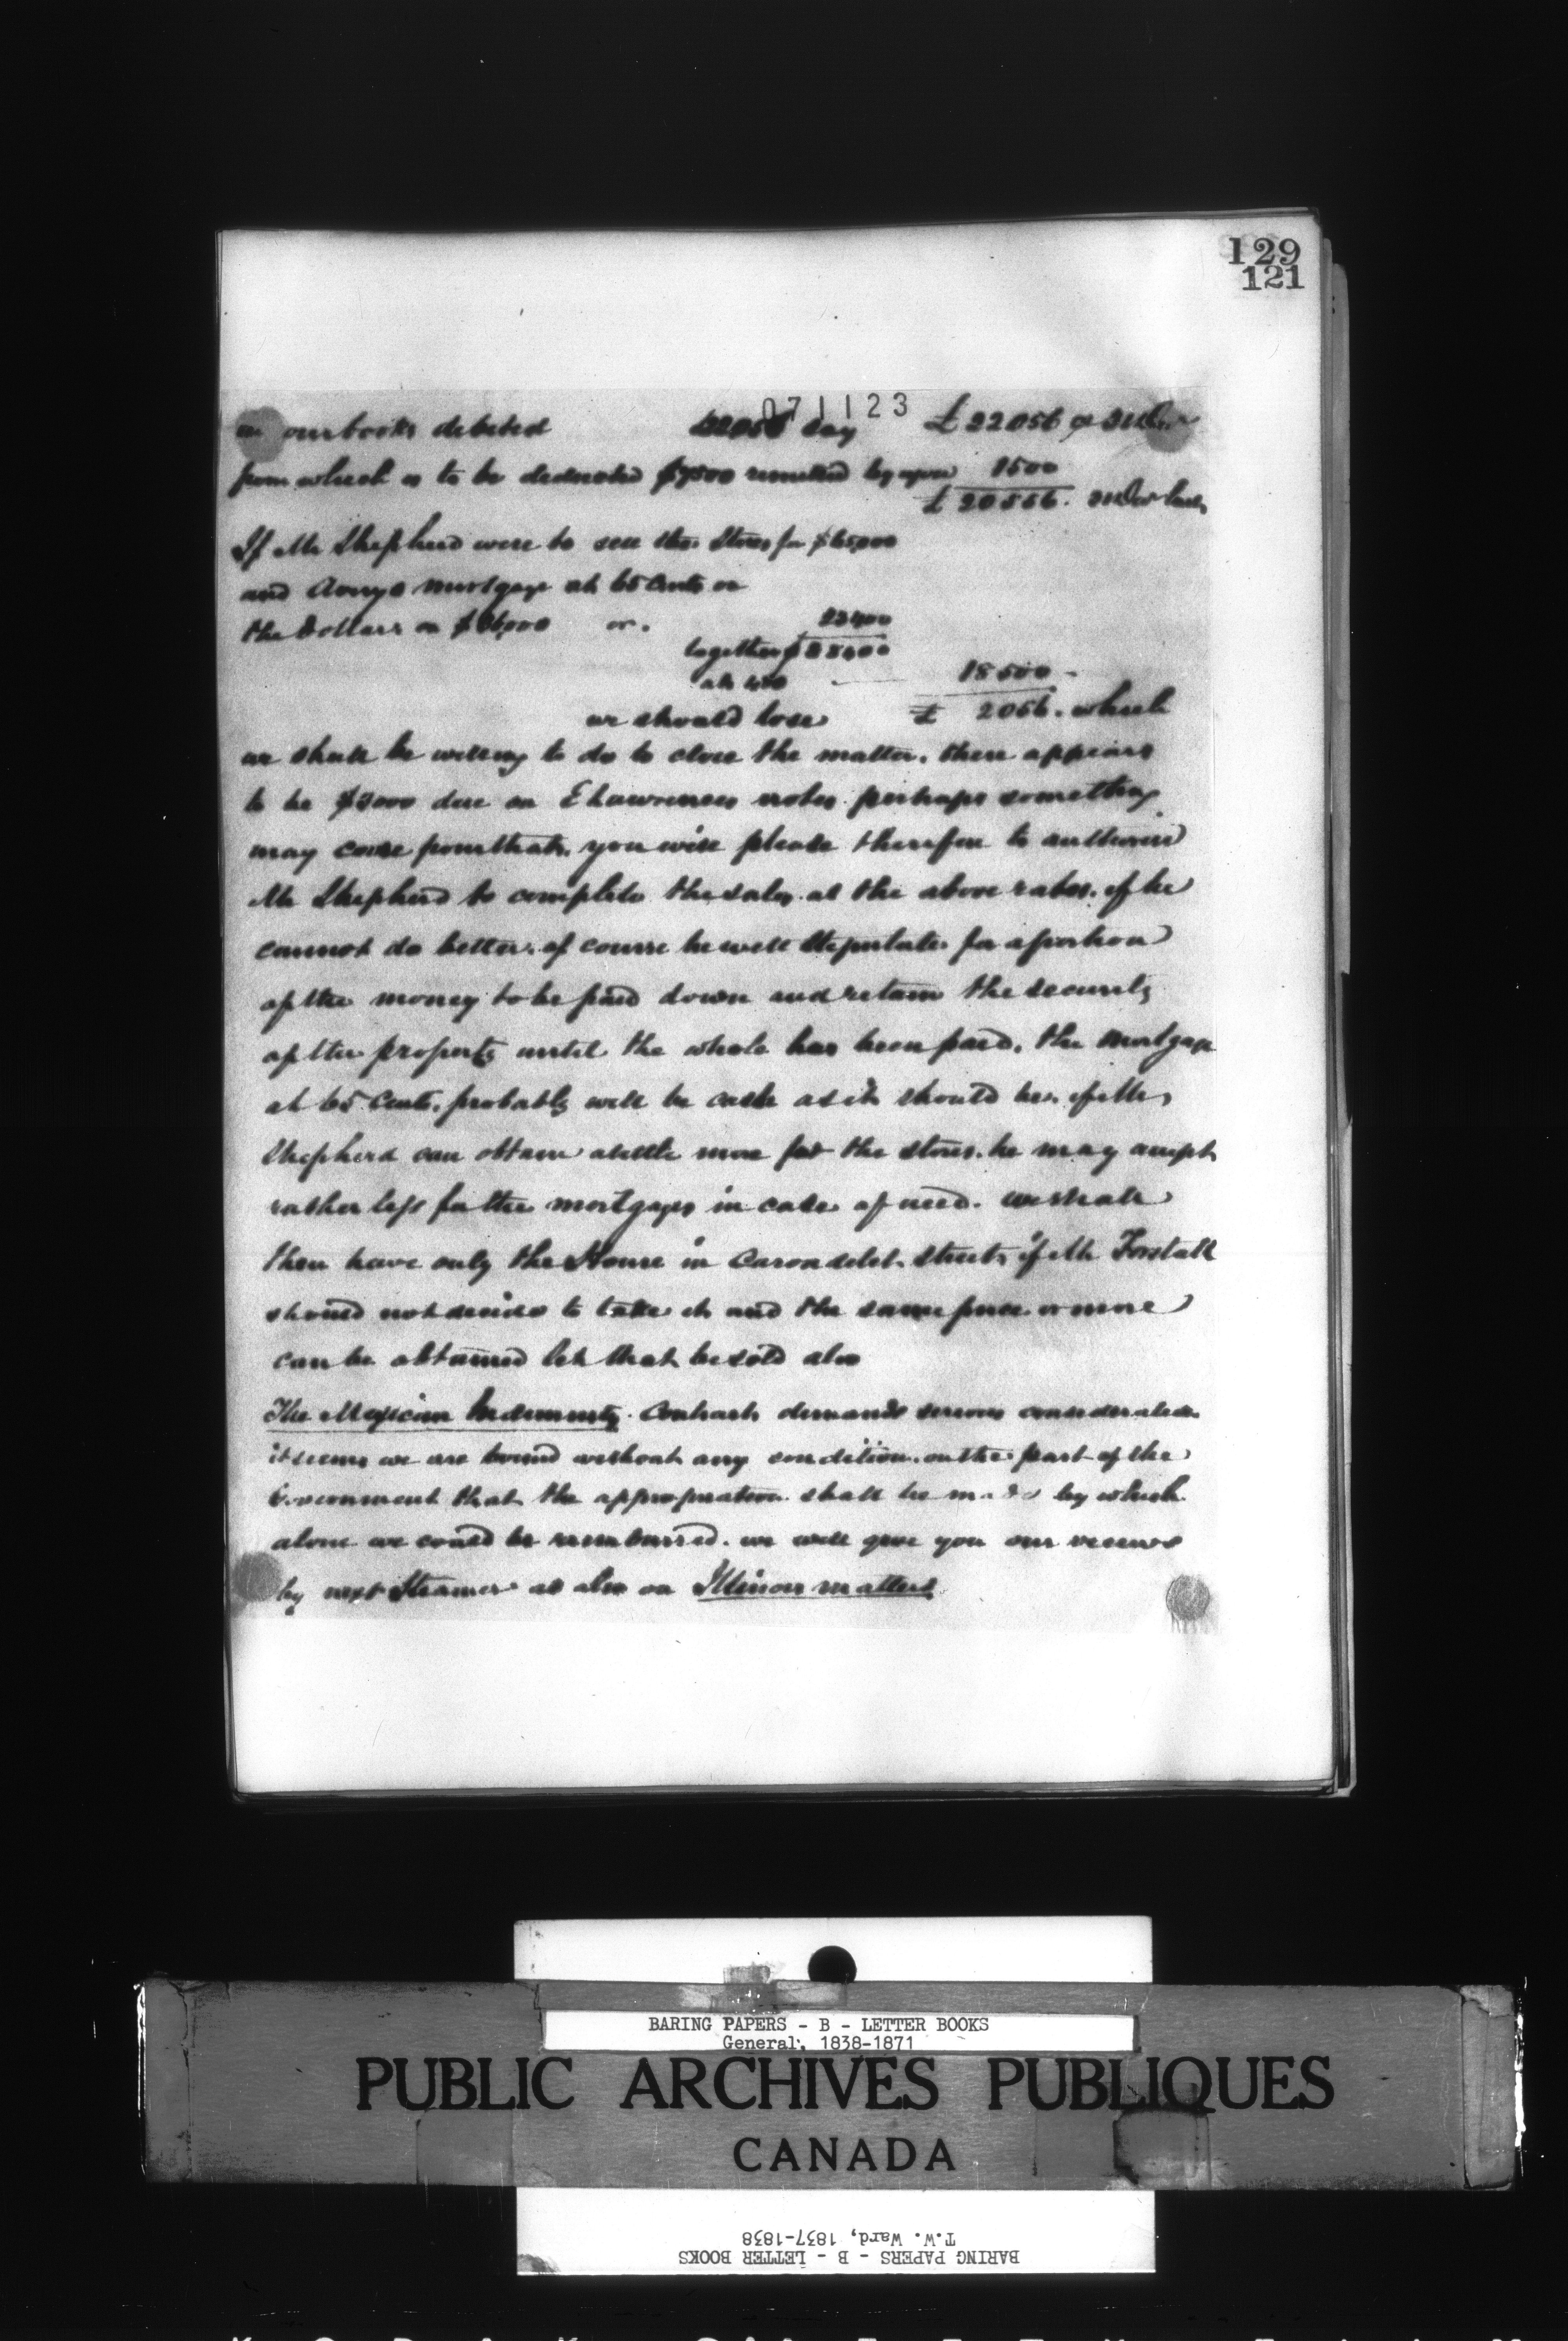 129
121
071123
in our books debited 22056 say £ 22056 or
from which is to be deducted $7500 remitted by 1500
£ 20556.
If Mr Shepherd were to sell the Stores for $65,000
and Averys mortgage at 65 Cents on
the Dollars on $36,000 or. 23400
together $ 88400
at 480 18500
we should lose £ 2056. which
we shall be willing to do to close the matter. there appears
to be $3000 due on E Lawrences notes perhaps something
may come from that. you will please therefore to authorise
Mr Shepherd to complete the sales at the above rates. if he
cannot do better. of course he will stipulate for a portion
of the money to be paid down and retain the security
of the property until the whole has been paid. the mortgage
at 65 Cents. probably will be cash as it should be. if Mr
Shepherd can obtain a little more for the stores. he may accept
rather less for the mortgages in case of need. we shall
then have only the House in Carondelet Street if Mr Forstall
should not decide to take it and the same price or more
can be obtained let that be sold also
The Mexican Indemnity Contract demands serious consideration
it seems we are bound without any condition on the part of the
Government that the appropriation shall be made by which
alone we could be reimbursed. we will give you our views
by next Steamer as also on Illinois matters
BARING PAPERS - B - LETTER BOOKS
General, 1838-1871
PUBLIC ARCHIVES PUBLIQUES
CANADA
T.W. Ward, 1837-1838
BARING PAPERS - B - LETTER BOOKS